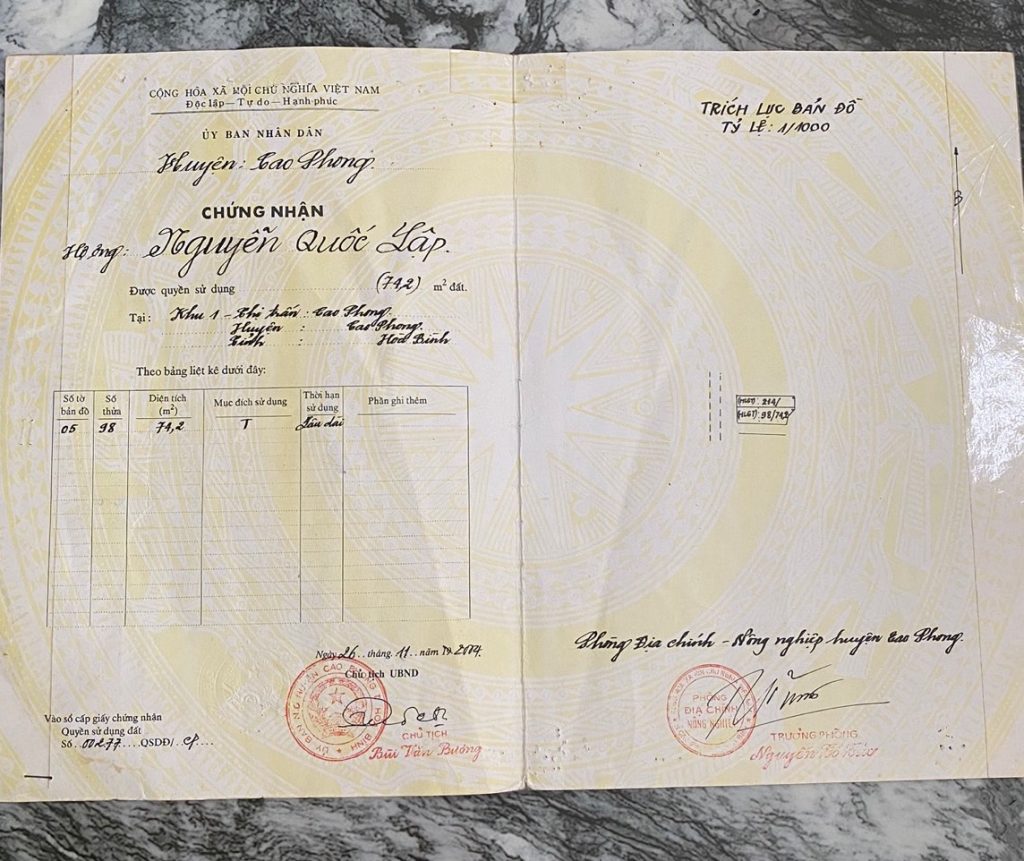 CỘNG HÒA XÃ HỘI CHỦ NGHĨA VIỆT NAM
Độc lập — Tự do — Hạnh phúc
ỦY BAN NHÂN DÂN
Huyện: Cao Phong
CHỨNG NHẬN
Hộ ông: Nguyễn Quốc Lập.
Được quyền sử dụng (74,2) m² đất.
Tại: Khu 1 - Thị trấn: Cao Phong.
Huyện : Cao Phong.
Tỉnh : Hoà Bình
Theo bảng liệt kê dưới đây:
Số tờ bản đồ Số thửa Diện tích (m²) Mục đích sử dụng Thời hạn sử dụng Phần ghi thêm
05 98 74,2 T Lâu dài
Ngày 26 tháng 11 năm 2004
Chủ tịch UBND
CHỦ TỊCH
Bùi Văn Bương
Vào sổ cấp giấy chứng nhận
Quyền sử dụng đất
Số 00277 QSDĐ/
TRÍCH LỤC BẢN ĐỒ
TỶ LỆ: 1/1000
B
98/74,2
Phòng Địa chính - Nông nghiệp huyện Cao Phong.
PHÒNG
ĐỊA CHÍNH
NÔNG NGHIỆP
TRƯỞNG PHÒNG
Nguyễn